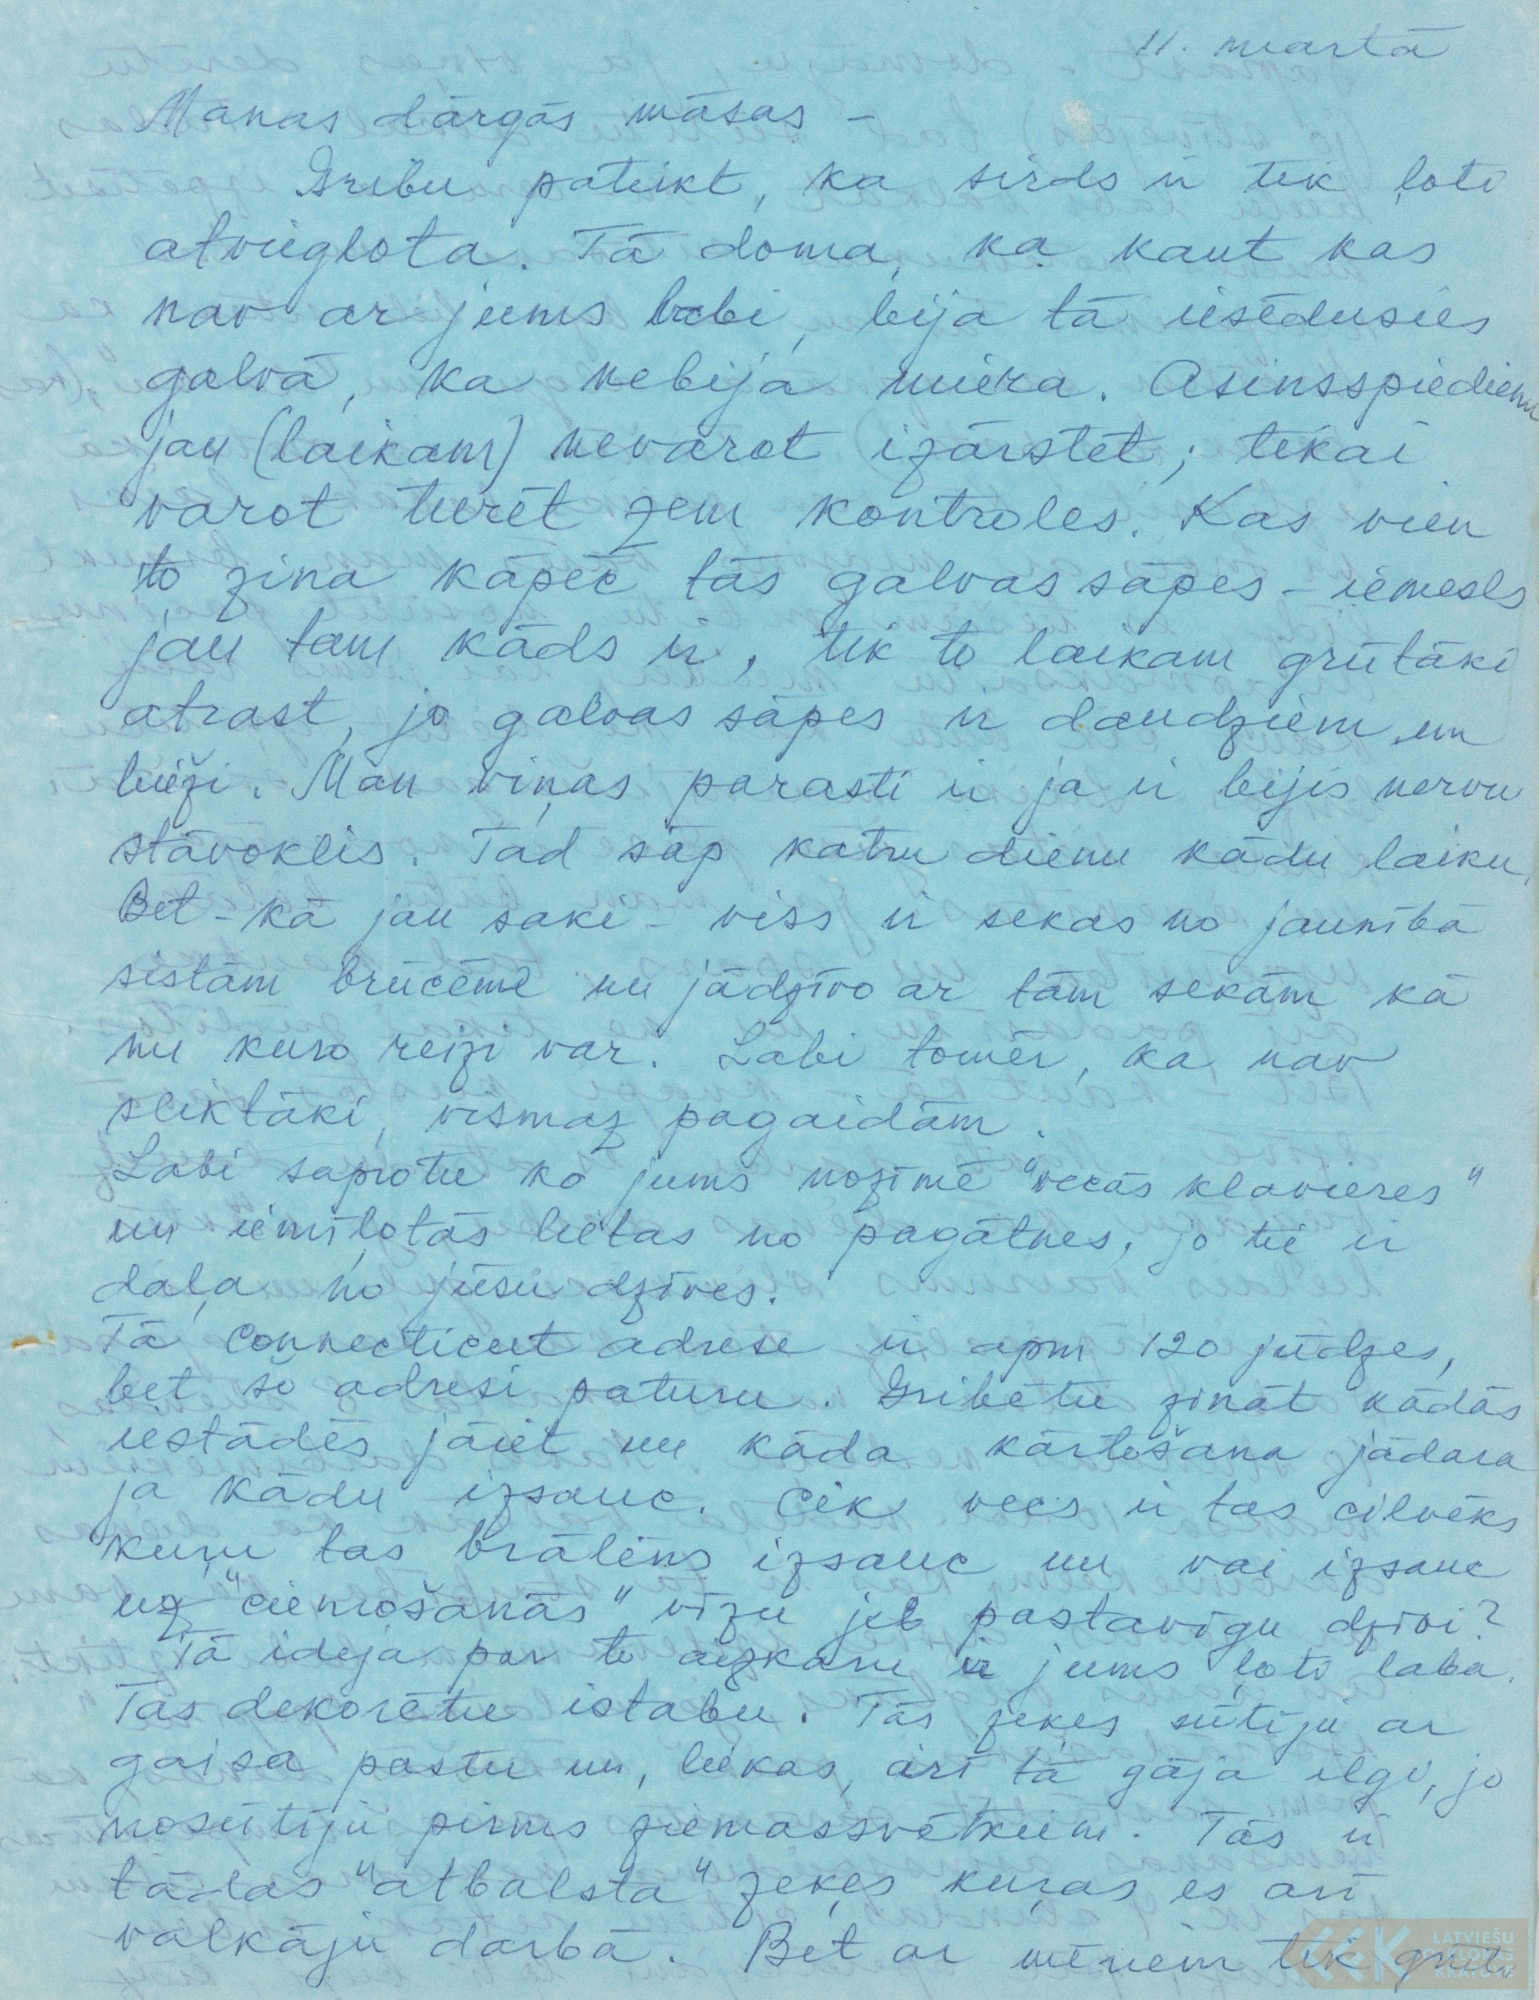 11. martā
Manas dārgās māsas –
Gribu pateikt, ka sirds ir tik ļoti
atvieglota. Tā doma, ka kaut kas
nav ar jums labi, bija tā iesēdusies
galvā, ka nebija miera. Asinsspiedienu
jau (laikam) nevarot izārstēt; tikai
varot turēt zem kontroles. Kas vien
to zina kāpēc tās galvas sāpes – iemesls
jau tam kāds ir, tik to laikam grūtāki
atrast, jo galvas sāpes ir daudziem un
bieži. Man viņas parasti ir ja ir bijis nervu
stāvoklis. Tad sāp katru dienu kādu laiku.
Bet – kā jau saki – viss ir sekas no jaunībā
sistām brūcēmē un jādzīvo ar tām sekām kā
nu kuro reizi var. Labi tomēr, ka nav
sliktāki, vismaz pagaidām.
Labi saprotu ko jums nozīmē "vecās klavieres"
un iemīļotās lietas no pagātnes, jo tie ir
daļa no jūsu dzīves.
Tā Connecticut adrese ir apm 120 jūdzes,
bet šo adresi paturu. Gribētu zināt kādās
iestādēs jāiet un kāda kārtošana jādara
ja kādu izsauc. Cik vecs ir tas cilvēks
kuru tas brālēns izsauc un vai izsauc
uz "ciemošanās" vīzu jeb pastāvīgu dzīvi?
Tā ideja par to aizkaru ir jums ļoti laba.
Tas dekorētu istabu. Tās zeķes sūtīju ar
gaisa pastu un, liekas, arī tā gāja ilgi, jo
nosūtīju pirms ziemassvētkiem. Tās ir
tādas "atbalsta" zeķes kuŗas es arī
valkāju darbā. Bet ar mēriem tik grūti
LATVIEŠU
KRĀTUVE